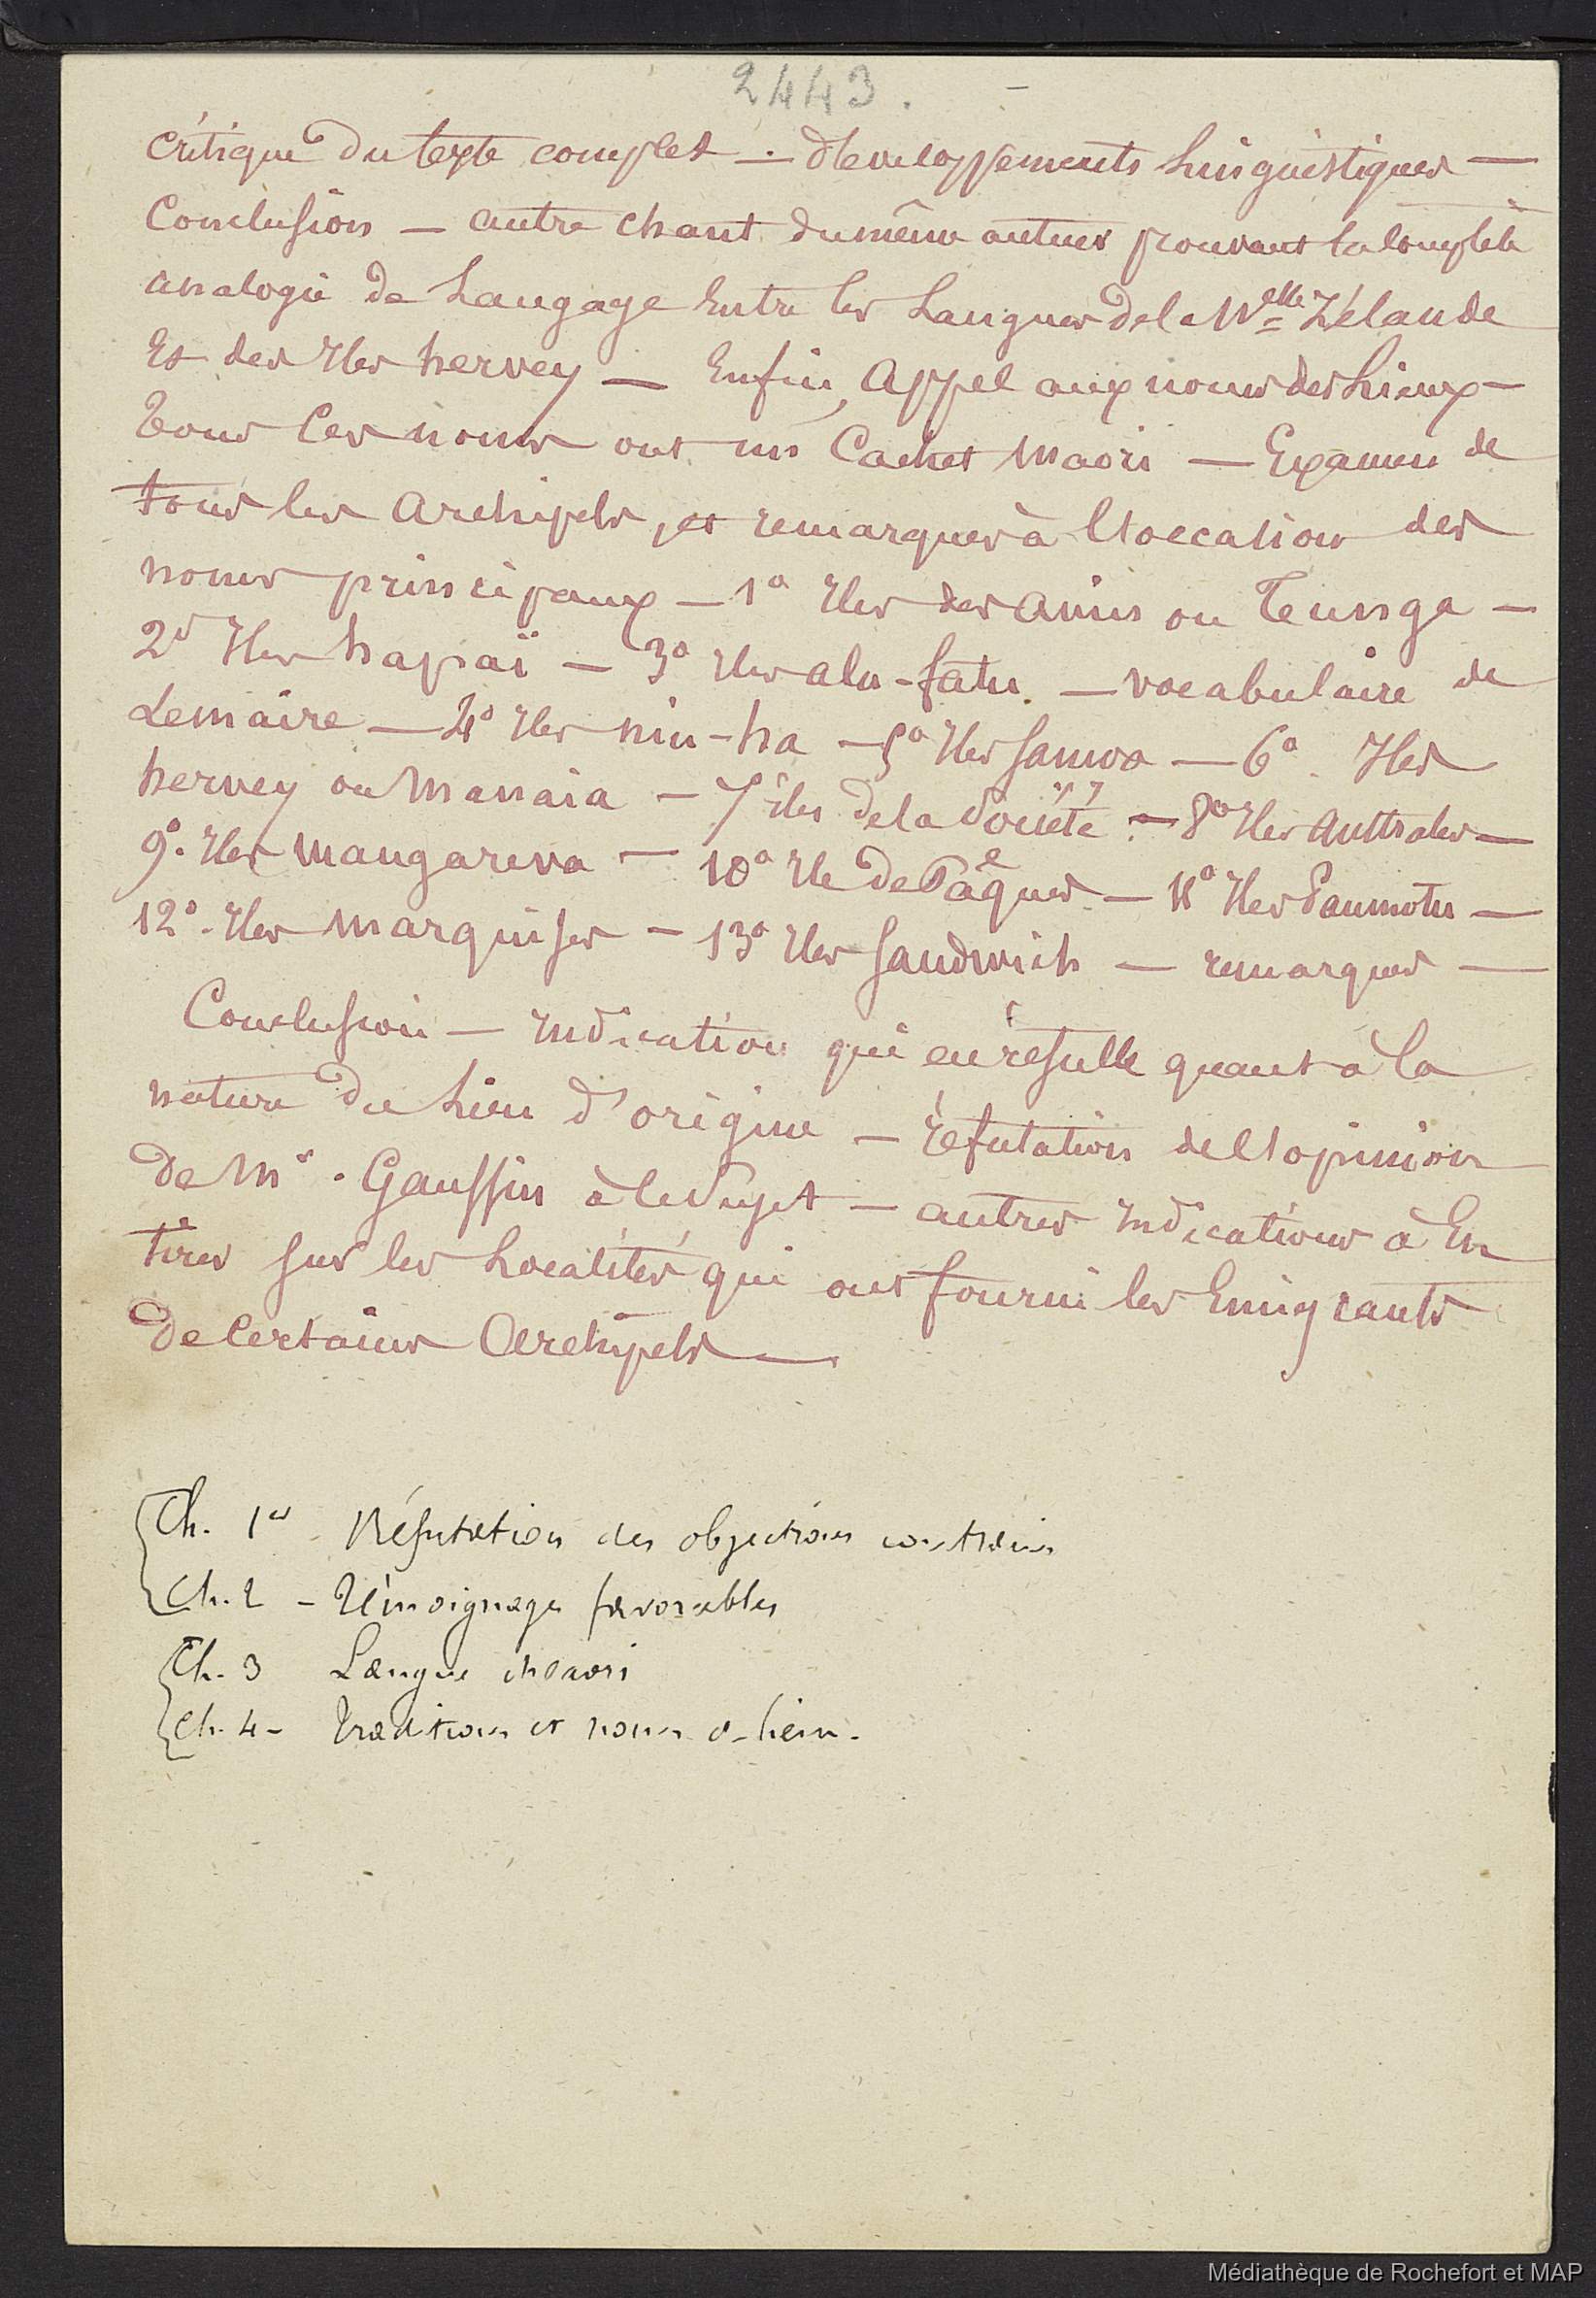 2443.
critique du texte complet — developpements linguistiques —
Conclusion — autre chant du même auteur prouvant la complète
analogie de Langage Entre les Langues de la Nelle Zélande
Et des Iles hervey — Enfin, Appel aux noms des Lieux —
Tous Ces noms ont un Cachet Maori — Examen de
tous les Archipels, et remarques à l'occasion des
noms principaux — 1° Iles des Amis ou Tunga —
2° Iles hapaï — 3° Iles alu-fatu. — vocabulaire de
Lemaire — 4° Iles niu-ha — 5° Iles Samoa — 6°. Iles
hervey ou Manaia — 7° îles de la Société — 8° Iles Australes —
9°. Iles Mangareva — 10° Ile de Pâques — 11° Iles Paumotu —
12°. Iles Marquises — 13° Iles Sandwich — remarques —
Conclusion — Indication qui en résulte quant à la
nature du Lieu d'origine — Réfutation de l'opinion
de Mr. Gaussin à ce Sujet — autres Indications à En
tirer sur les Localités qui ont fourni les Emigrants
de Certains Archipels —
Ch. 1er Réfutation des objections contraires
Ch. 2 — Témoignages favorables
Ch. 3 Langue maori
Ch. 4 — Traditions et noms de lieux.
Médiathèque de Rochefort et MAP